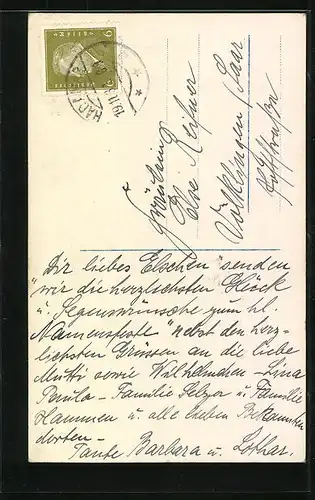 6
6
19.11.
Fräulein
Else Reifner
Völklingen / Saar
Dir liebes Elschen senden
wir die herzlichsten Glück
u. Segenswünsche zum hl.
Namensfeste nebst den herz-
lichsten Grüssen an die liebe
Mutti sowie Wilhelmchen - Lina
Paula - Familie Selzer u. Familie
Hammen u. alle lieben Bekannten
dorten -
Tante Barbara u. Lothar.